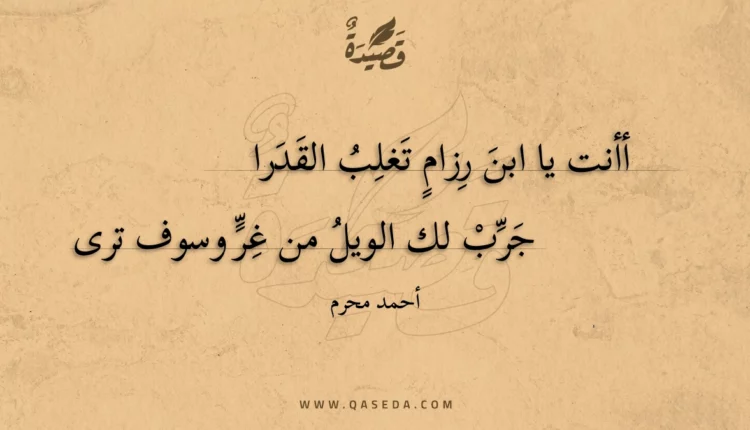 قَصِيدَةٌ
أأنت يا ابنَ رِزامٍ تَغلِبُ القَدَرا
جَرِّبْ لك الويلُ من غِرٍّ وسوف ترى
أحمد محرم
WWW.QASEDA.COM